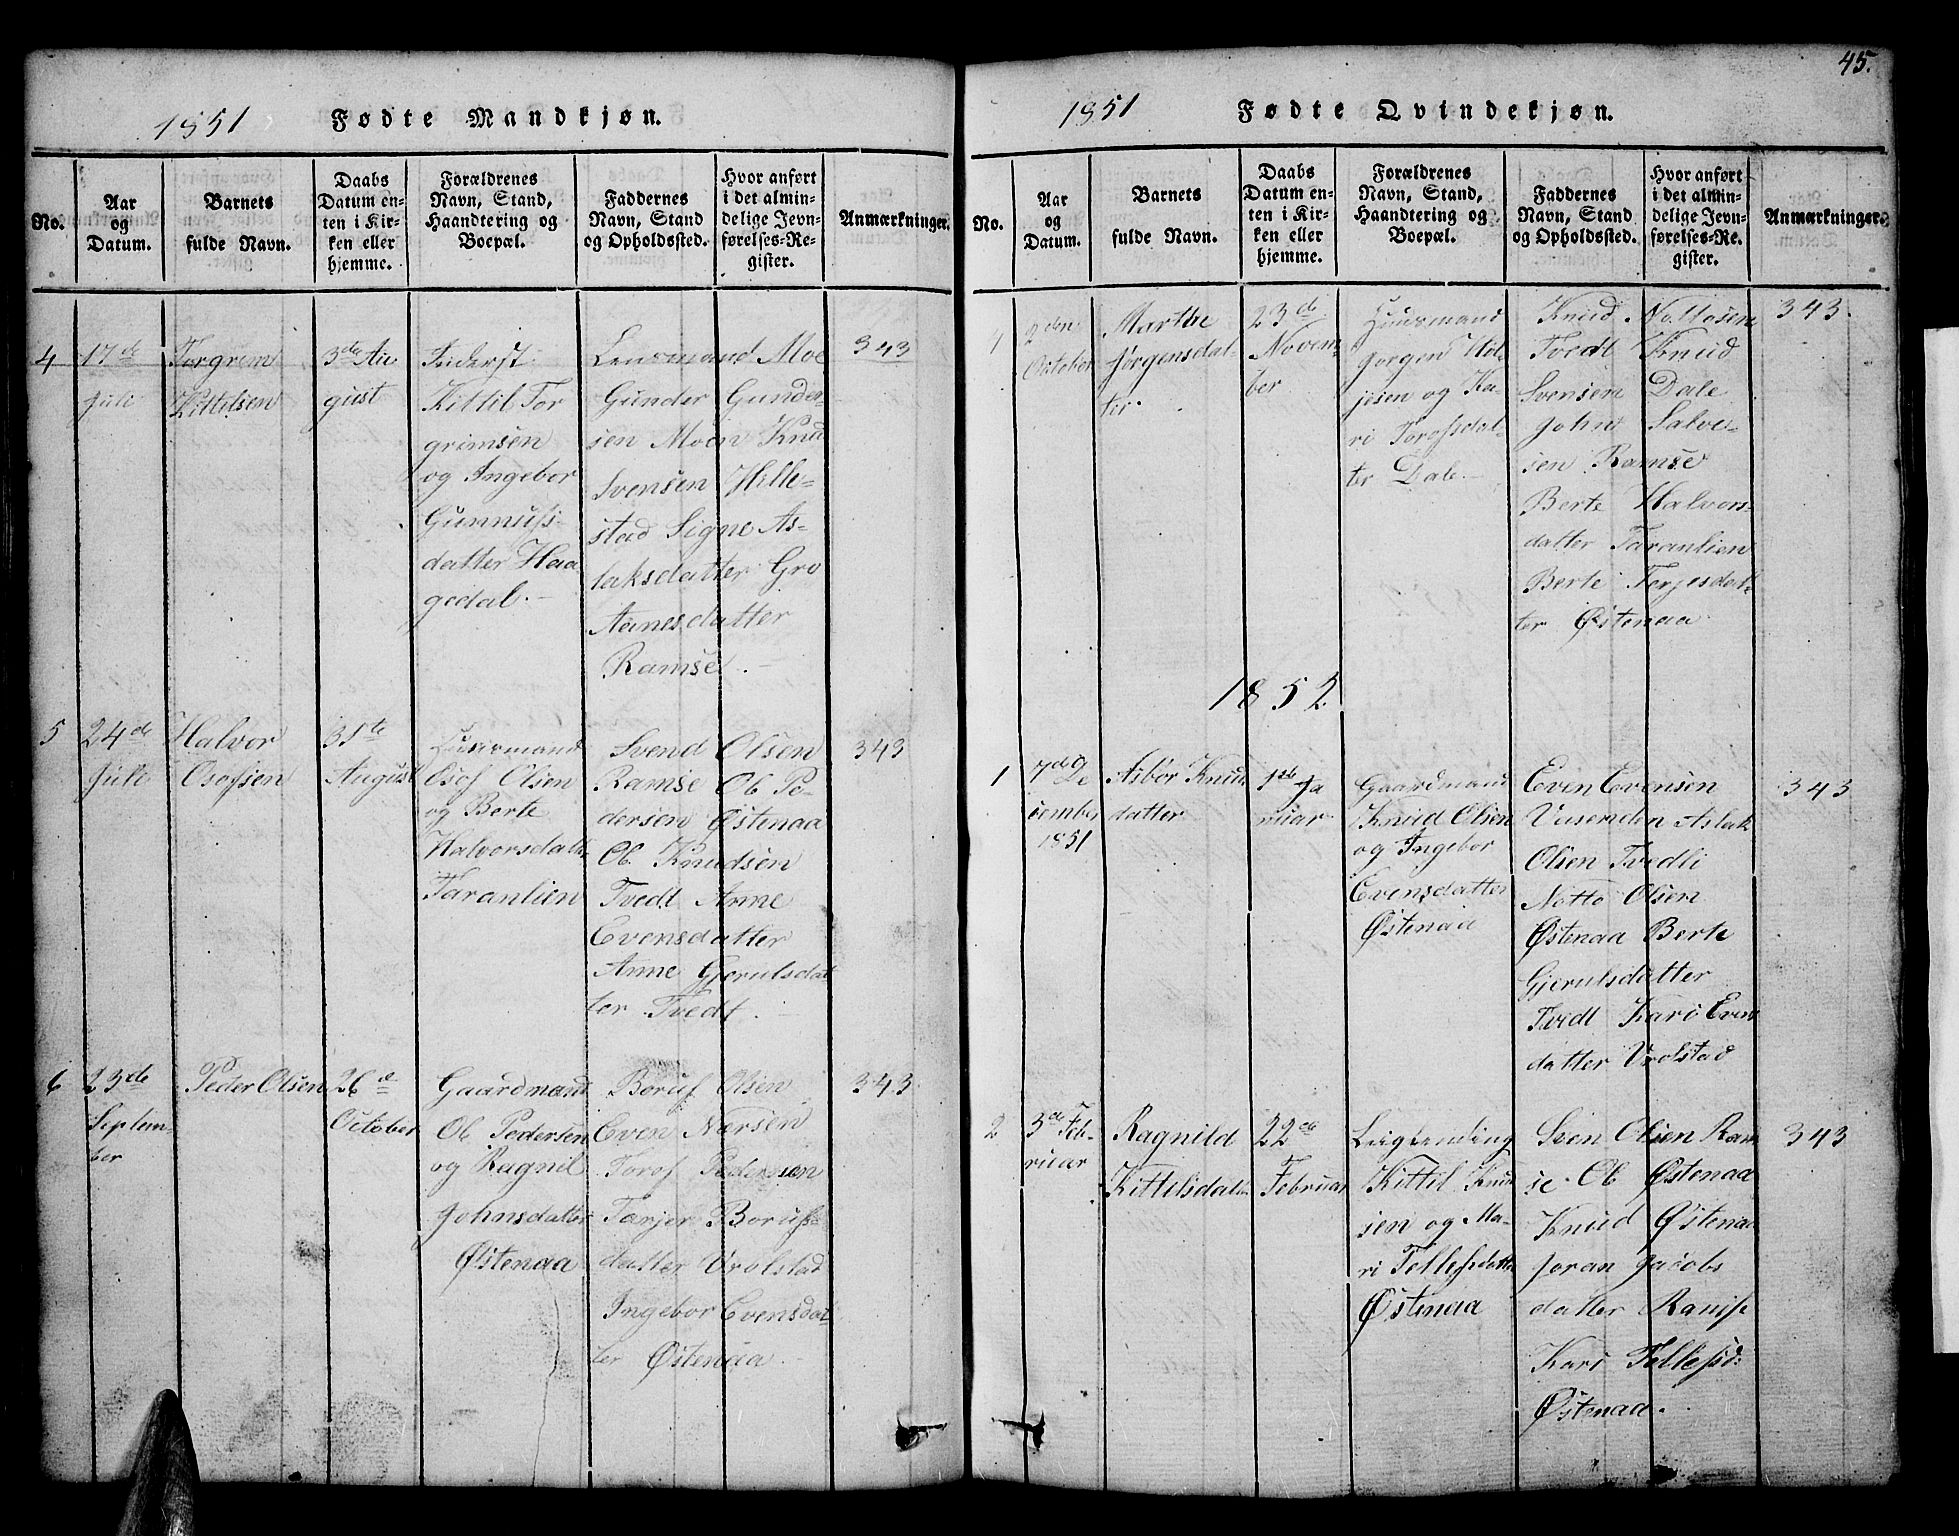 1851 Fødte Mandkjøn.
No.
Aar
og
Datum.
Barnets
fulde Navn.
Daabs
Datum en-
ten i Kir-
ken eller
hjemme.
Forældrenes
Navn, Stand,
Haandtering og
Boepæl.
Faddernes
Navn, Stand
og Opholdssted.
Hvor anført
i det almin-
delige Jevn-
førelses-Re-
gister.
Anmærkninger.
4
17de
Juli
Torgrem
Kittelsen
3de Au
gust
Inderst
Kittil Tor
grimsen
og Ingebor
Gunnufs-
datter Haa
gedal.
Lensmand Moe
Gunder Gunder
sen Moen Knud
Svensen Helle-
stad Signe As-
laksdatter Gro
Aanesdatter
Ramse.
343
5
24de
Juli
Halvor
Osofsen
31te
August
Huusmand
Osof Olsen
og Berte
Halvorsdatt
Taranlien
Svend Olsen
Ramse Ob Pe-
dersen Østenaa
Ob Knudsen
Tvedt Anne
Evensdatter
Anne Gjerulsdat
ter Tvedt.
343
6
23de
Septem-
ber
Peder Olsen
26de
October
Gaardmand
Ob Pedersen
og Ragnil
Johnsdatter
Østenaa
Boruf Olsen
Even Nersen
Torof Pedersen
Tarjer Borufs-
datter Vrolstad
Ingebor Evensdat
ter Østenaa
343
45.
1851 Fødte Qvindekjøn.
No.
Aar
og
Datum.
Barnets
fulde Navn.
Daabs
Datum en-
ten i Kir-
ken eller
hjemme.
Forældrenes
Navn, Stand,
Haandtering og
Boepæl.
Faddernes
Navn, Stand
og Opholdssted.
Hvor anført
i det almin-
delige Jevn-
førelses-Re-
gister.
Anmærkninger.
1
2den
October
Marthe
Jørgensdat-
ter.
23de
Novem-
ber
Huusmand
Jorgen
jesen og Ka-
ri Torofsdat-
ter Dale.
Knud Nottosen
Tvedt Knud
Svensen Dale
John Salve-
sen Ramse
Berte Halvors-
datter Taranlien
Berte Terjesdat-
ter Østenaa
343.
1852
1
7de De
cember
1851
Asbør Knuds
datter
1ste Ja
nuar
Gaardmand
Knud Olsen
og Ingebor
Evensdatter
Østenaa
Even Evensen
Vasenden Aslak
Olsen Tvedli
Notto Olsen
Østenaa Berte
Gjerulsdatter
Tvedt Kari Even
datter Vrolstad
343
2
3de Feb-
ruar
Ragnild
Kittilsdatt
22de
Februar
Kittil Knud
sen og Ma-
ri Tellefsdatter
Østenaa
Sven Olsen Ram
se. Ob Østenaa
Knud Østenaa
Joran Jacobs
datter Ramse
Kari Tellefsd:
Østenaa.
343